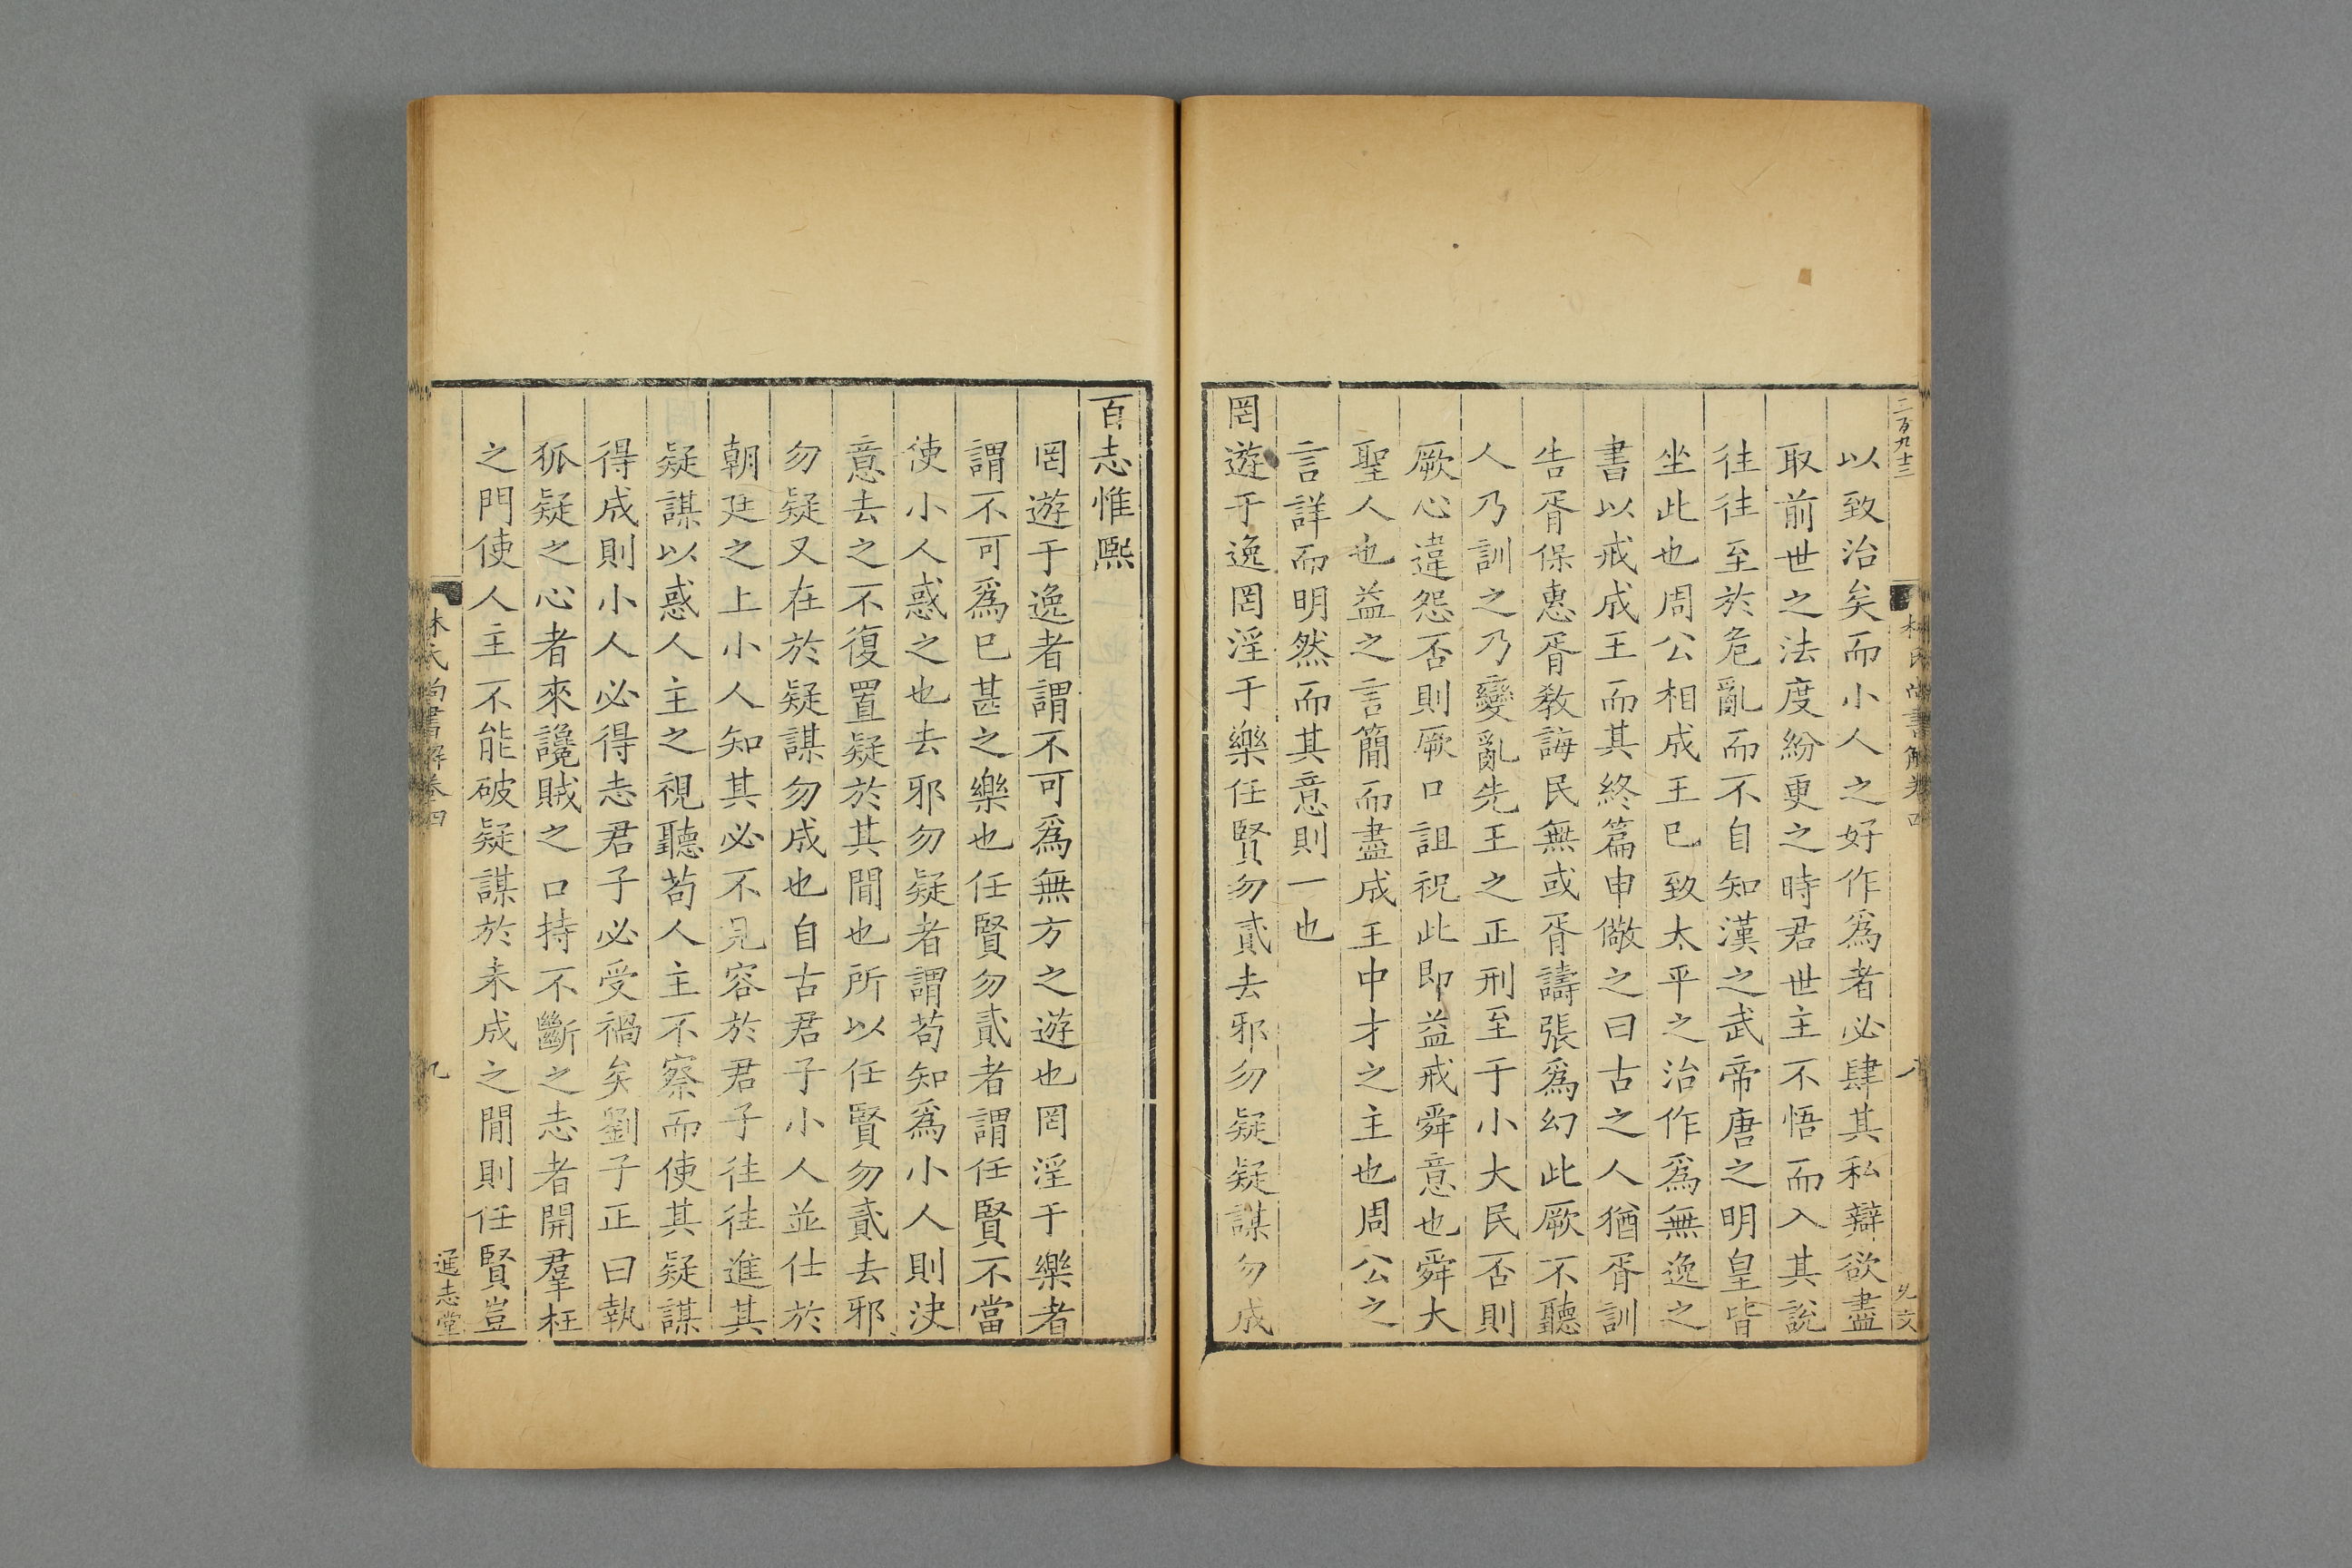 林氏尚書解卷四
八
以致治矣而小人之好作爲者必肆其私辯欲盡
取前世之法度紛更之時君世主不悟而入其說
往往至於危亂而不自知漢之武帝唐之明皇皆
坐此也周公相成王已致太平之治作爲無逸之
書以戒成王而其終篇申儆之曰古之人猶胥訓
告胥保惠胥敎誨民無或胥譸張爲幻此厥不聽
人乃訓之乃變亂先王之正刑至于小大民否則
厥心違怨否則厥口詛祝此即益戒舜意也舜大
聖人也益之言簡而盡成王中才之主也周公之
言詳而明然而其意則一也
罔遊于逸罔淫于樂任賢勿貳去邪勿疑疑謀勿成
百志惟熙
罔遊于逸者謂不可爲無方之遊也罔淫于樂者
謂不可爲已甚之樂也任賢勿貳者謂任賢不當
使小人惑之也去邪勿疑者謂苟知爲小人則決
意去之不復置疑於其閒也所以任賢勿貳去邪
勿疑又在於疑謀勿成也自古君子小人並仕於
朝廷之上小人知其必不見容於君子往往進其
疑謀以惑人主之視聽苟人主不察而使其疑謀
得成則小人必得志君子必受禍矣劉子正曰執
狐疑之心者來讒賊之口持不斷之志者開羣枉
之門使人主不能破疑謀於未成之閒則任賢豈
林氏尚書解卷四
九
通志堂